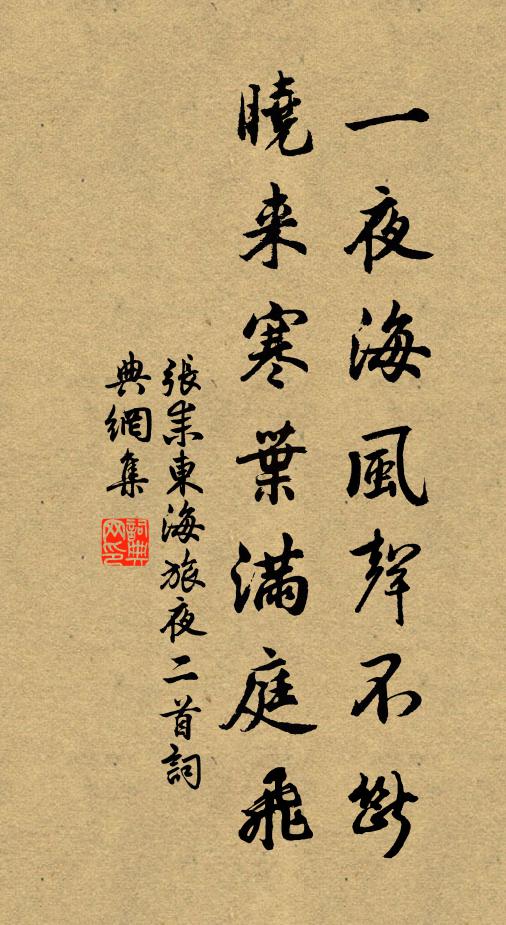 一夜海風聲不斷
曉来寒葉满庭飛
張耒東海旅夜二首詞
典網集
詞典網印